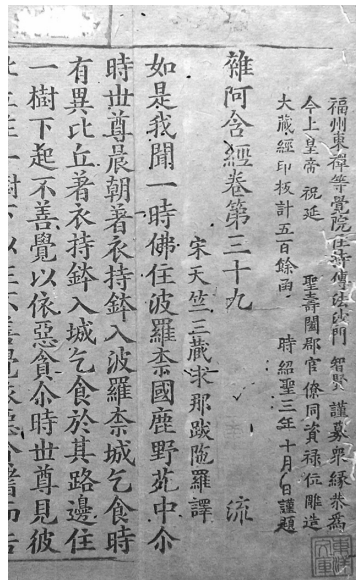 福州東禪等覺院住持傳法沙門 智賢 謹募衆緣恭爲
今上皇帝 祝延 聖壽闔郡官僚同資禄位雕造
大藏經印板計五百餘函 時紹聖三年十月日謹題
雜阿含經卷第三十九 流
宋天竺三藏求那跋陁羅譯
如是我聞一時佛住波羅柰國鹿野苑中尒
時世尊晨朝著衣持鉢入波羅柰城乞食時
有異比丘著衣持鉢入城乞食於其路邊住
一樹下起不善覺以依惡貪尒時世尊見彼